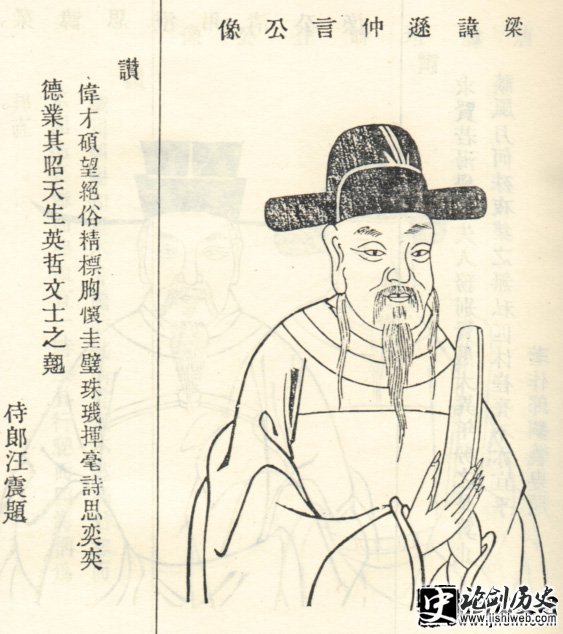 梁諱遜仲言公像
讚
偉才碩望絕俗精標胸懷圭璧珠璣揮毫詩思奕奕
德業其昭天生英哲文士之翹
侍郎汪震題
史 论剑历史
www.lishiweb.com